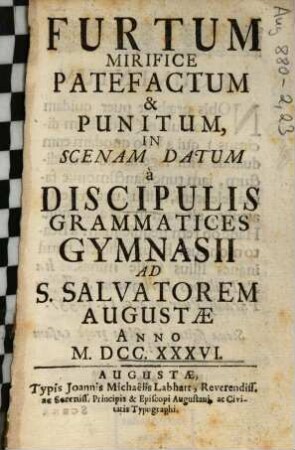 FURTUM
MIRIFICE
PATEFACTUM
&
PUNITUM,
IN
SCENAM DATUM
à
DISCIPULIS
GRAMMATICES
GYMNASII
AD
S. SALVATOREM
AUGUSTÆ
ANNO
M. DCC. XXXVI.
AUGUSTÆ,
Typis Joannis Michaëlis Labhart, Reverendiss.
ac Sereniss. Principis & Episcopi Augustani, ac Civi-
tatis Typographi.
Aug 880-2,23